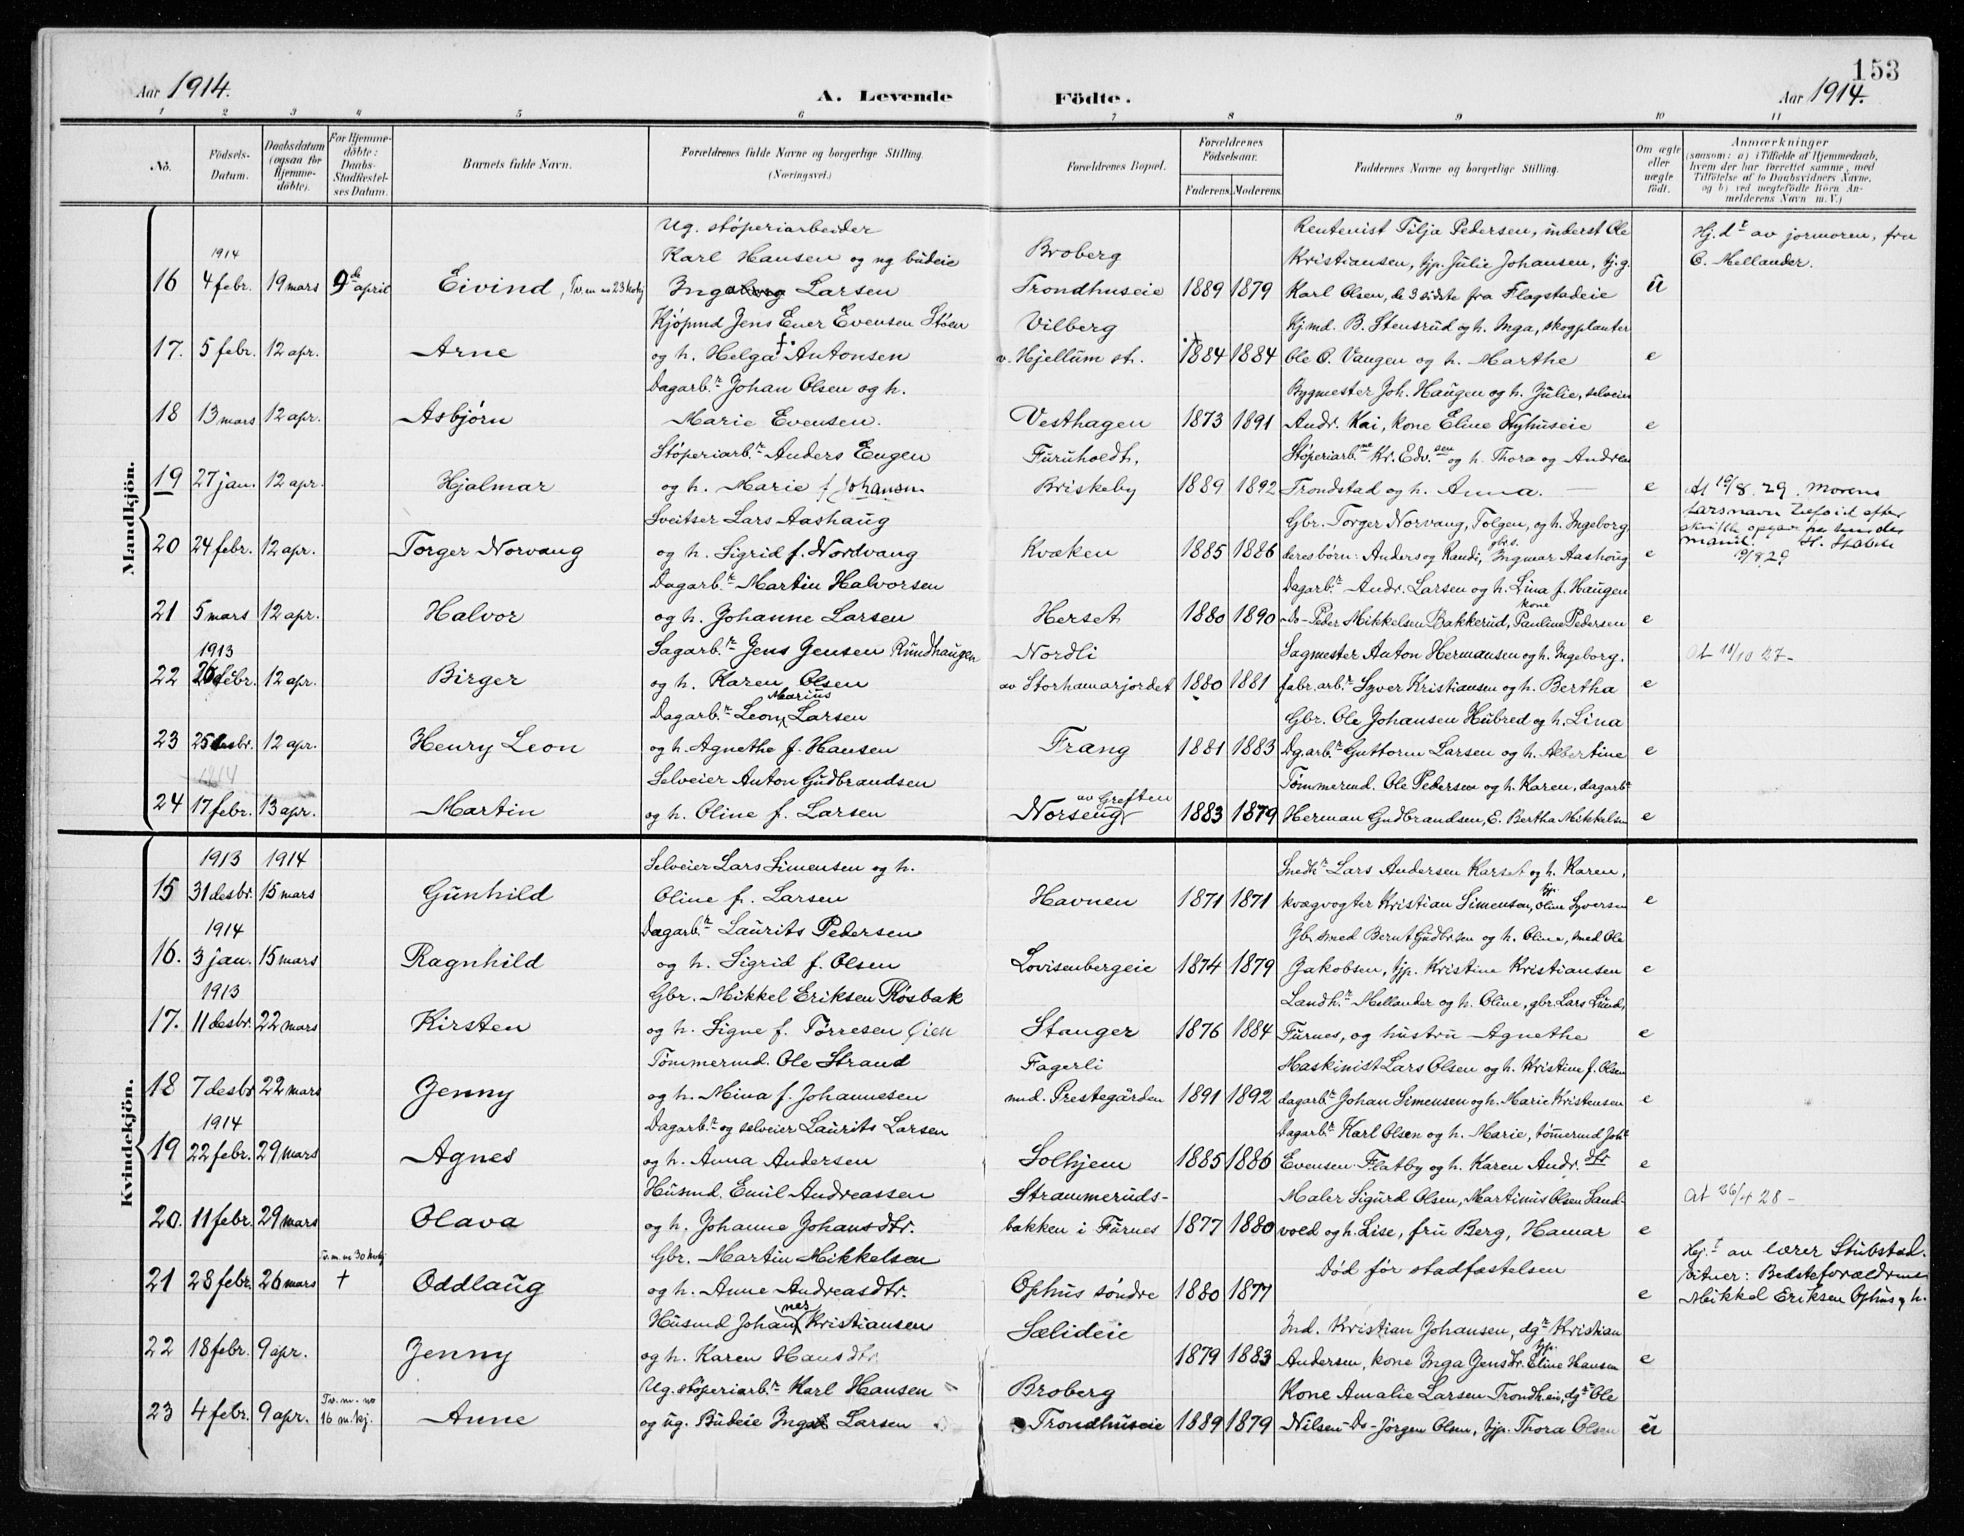 153
Aar 1914.
A. Levende Födte.
Aar 1914.
1 2 3 4 5 6 7 8 9 10 11
No.
Födsels-Datum.
Daabsdatum (ogsaa for Hjemme-döbte).
For Hjemme-döbte: Daabs-Stadfestel-ses Datum.
Barnets fulde Navn.
Forældrenes fulde Navne og borgerlige Stilling. (Næringsvei.)
Forældrenes Bopæl.
Forældrenes Födselsaar.
Faderens. Moderens.
Faddernes Navne og borgerlige Stilling.
Om ægte eller uægte födt.
Anmærkninger (saasom: a) i Tilfælde af Hjemmedaab, hvem der har forrettet samme, med Tilföielse af to Daabsvidners Navne, og b) ved uegtefödte Börn An-melderens Navn m. V.)
Mandkjön.
Ug. støperiarbeider
Renteinist Tilja Pedersen, inderst Ole
Hj.dt av jormoren, fru
1914
Karl Hansen og ug budeie
Broberg
Kristiansen, tjp. Julie Johansen, tj.g.
C. Mellander.
16 4 febr. 19 mars 9de april Eivind, Tv. m no 23 kvkj Inga Larsen Trondhuseie 1889 1879 Karl Olsen, de 3 sidste fra Flagstadeie ü
Kjøpmd Jens Ener Evensen Støen
Vilberg
Kjmd. B. Stensrud og h. Inga, skogplanter
17. 5 febr. 12 apr. Arne og h. Helga Antonsen v. Hjellum st. 1884 1884 Ole C. Vangen og h. Marthe e
Dagarb.r Johan Olsen og h.
Bygmester Joh. Haugen og h. Julie, selveier
18 13 mars 12 apr. Asbjørn Marie Evensen. Vesthagen 1873 1891 Andr. Kai, kone Eline Nyhuseie e
Støperiarb.r Anders Engen
Furuholdt,
Støperiarb.ne Kr. Edv.sen og h. Thora og Andreas
19 27 jan. 12 apr. Hjalmar og h. Marie f Johansen Briskeby 1889 1892 Trondstad og h. Anna. e At 19/8.29. Morens
Sveitser Lars Aashaug
Gbr. Torger Norvang, Tolgen, og h. Ingeborg
farsnavn tilføid efter
20 24 febr. 12 apr. Torger Norvang og h. Sigrid f. Nordvang Kvæken 1885 1886 deresbørn: Anders og Randi, gbrs. Ingmar Aashoug e
skriftl. opgav
19/8 29
Dagarb.r Martin Halvorsen
Dagarb.r Andr. Larsen og h. Lina f. Haugen
21 5 mars 12 apr. Halvor og h. Johanne Larsen Herset 1880 1890 Do- Peder Mikkelsen Bakkerud, kone Pauline Pedersen e
1913
Sagarb.r Jens Jensen Rundhaugen
Nordli
Sagmester Anton Hermansen og h. Ingeborg.
At 18/10 27-
22 26 febr. 12 apr. Birger og h. Karen Olsen av Storhamarjordet 1880 1881 fabr.arb.r Syver Kristiansen og h. Bertha e
Dagarb.r Leon Marius Larsen
Gbr. Ole Johansen Hubred og h. Lina
23 25 desbr. 12 apr. Henry Leon og h. Agnethe f. Hansen Frang 1881 1883 Dg.arb.r Guttorm Larsen og h. Albertine e
1914
Selveier Anton Gudbrandsen
Tømmermd. Ole Pedersen og h. Karen, dagarb.r
24 17 febr. 13 apr. Martin og h. Oline f. Larsen Norseng av Greften 1883 1879 Herman Gudbrandsen, E. Bertha Mikkelsen e
Kvindekjön.
1913 1914
Selveier Lars Simensen og h.
Smedm.r Lars Andersen Karset og h. Karen,
15 31 desbr. 15 mars Gunhild Oline f. Larsen Havnen 1871 1871 kvægvogter Kristian Simensen, tjp. Oline Syversen e
1914
Dagarb.r Laurits Pedersen
Gb. smed Bernt Gudbrsen og h. Oline, smed Ole
16. 3 jan. 15 mars Ragnhild og h. Sigrid f. Olsen Lovisenbergeie 1874 1879 Jakobsen, tjp. Kristine Kristiansen e
1913
Gbr. Mikkel Eriksen Røsbak
Landh.r Mellander og h. Oline, gbr. Lars Lund,
17. 11 desbr. 22 mars Kirsten og h. Signe f. Torresen Lien Stanger 1876 1884 Furnes, og hustru Agnethe e
Tømmermd. Ole Strand
Fagerli
Maskinist Lars Olsen og h. Kristine f. Olsen
18 7 desbr 22 mars Jenny og h. Mina f. Johannesen nid. Prestegården 1891 1892 dagarb.r Johan Simensen og h. Marie Kristensen e
1914
Dagarb.r og selveier Laurits Larsen
Dagarb.r Karl Olsen og h. Marie, tømmermd Joh.
19 22 febr. 29 mars Agnes og h. Anna Andersen Solhjem 1885 1886 Evensen Flatby og h. Karen Andr.dtr e
Husmd. Emil Andreassen
Strammeruds-
Maler Sigurd Olsen, Martinus Olsen Sand-
At 26/4 28 -
20. 11 febr. 29 mars Olava og h. Johanne Johansdtr. bakken i Furnes 1877 1880 vold og h. Lise, fru Berg, Hamar e
Tv. m. no 30 kvkj
Gbr. Martin Mikkelsen
Død før stadfæstelsen
Hj.t av lærer Stubstad.
21 28 febr. 26 mars † Oddlaug og h. Anne Andreasdtr. Ophus søndre 1880 1877 e
Vitner: Bedsteforældrene
Mikkel Eriksen Ophus og h.
Husmd Johannes Kristiansen
Sælideie
Ind. Kristian Johansen, dg.r Kristian
22 18 febr. 9 apr. Jenny og h. Karen Hansdtr. 1879 1883 Andersen, kone Inga Jensdtr. tjp. Eline Hansen e
Ug. støperiarb.r Karl Hansen
Broberg
Kone Amalie Larsen Trondh.eie, dg.r Ole
23 4 febr. 9 apr. Tv. m. no 16 m.kj. Anne og ug. Budeie Inga Larsen Trondhuseie 1889 1879 Nilsen Do- Jørgen Olsen, tjp. Thora Olsen ü